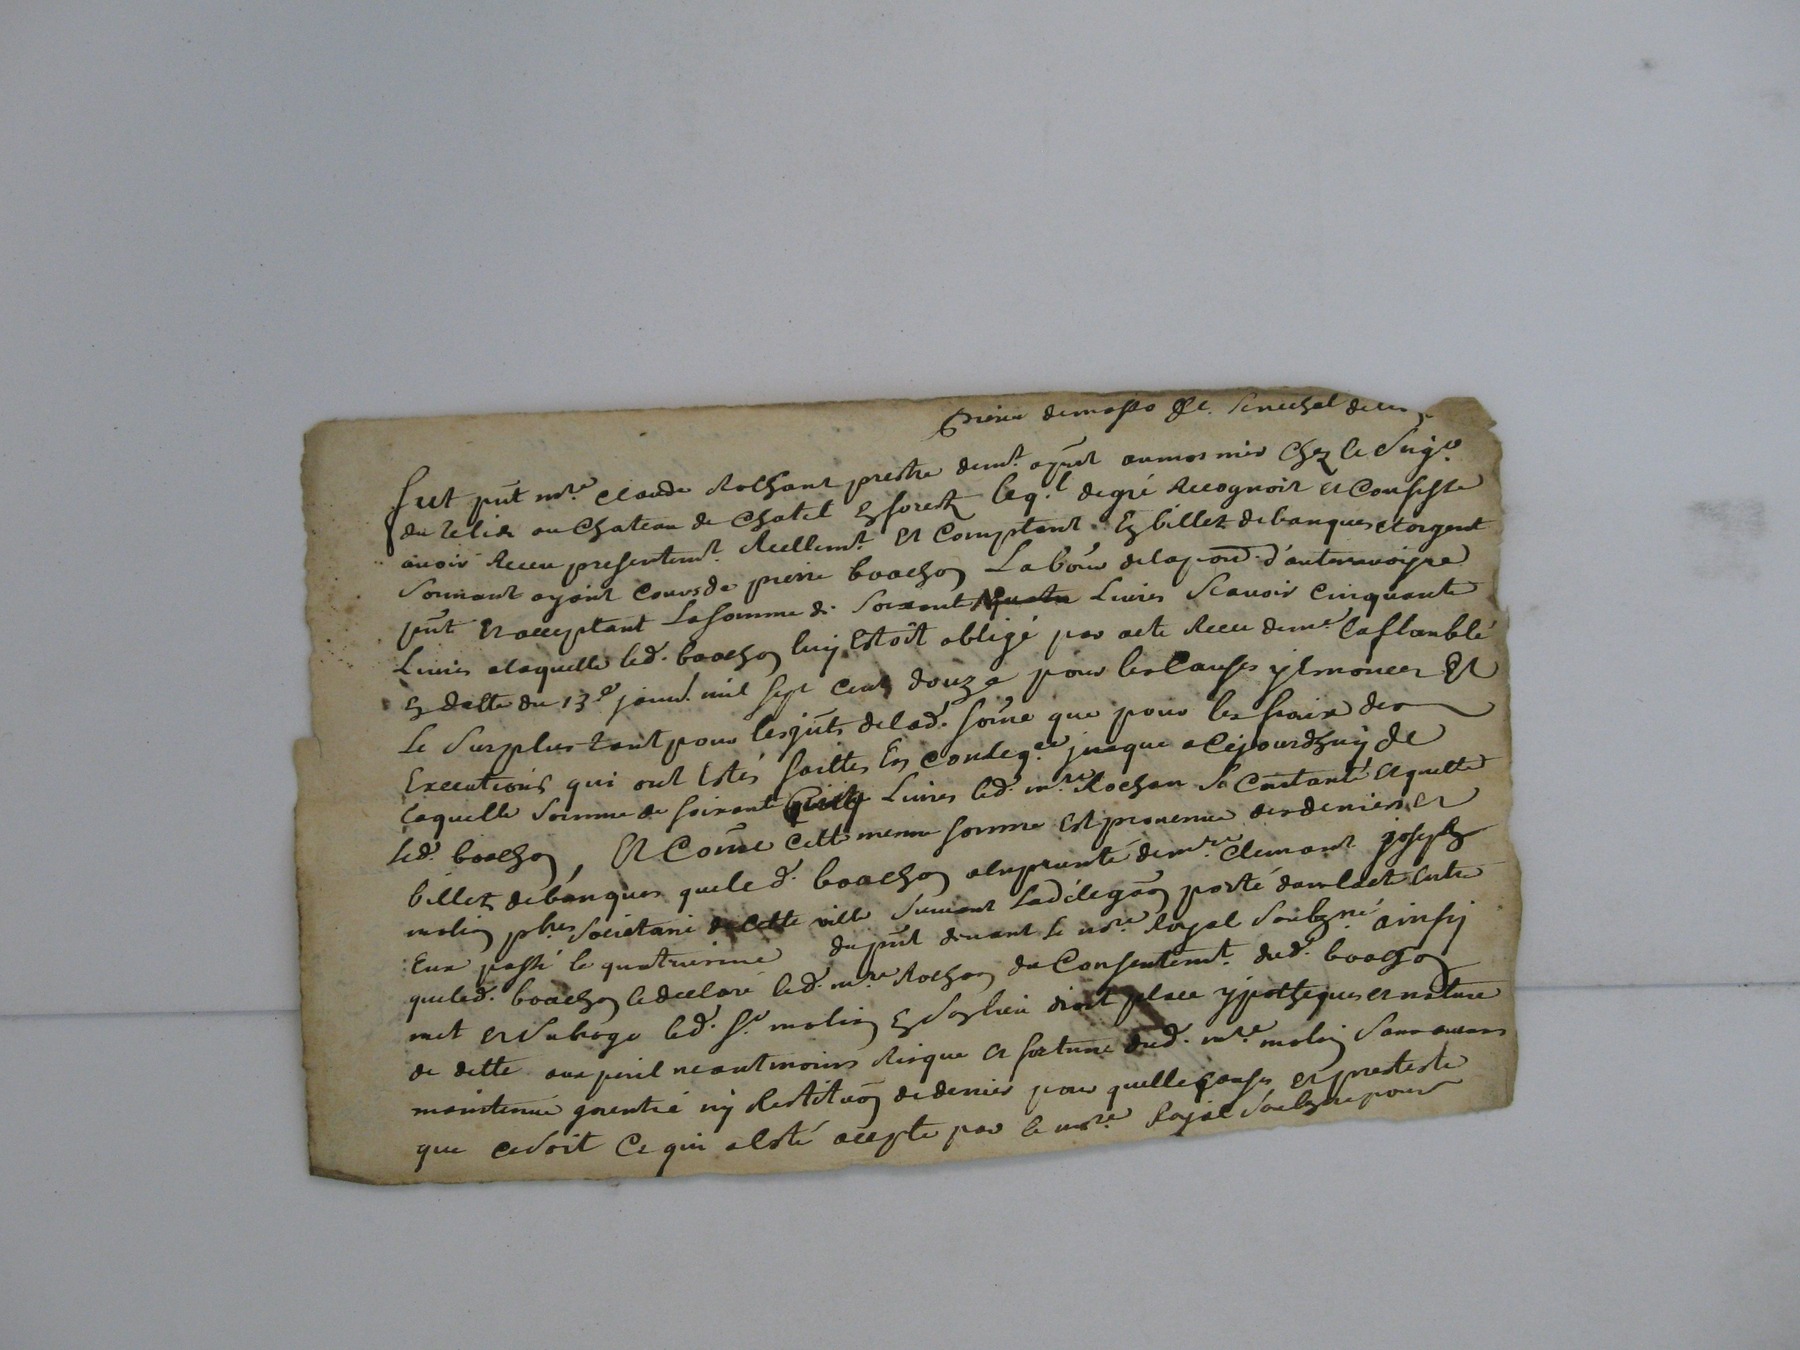 pierre demasso senechal de
fut pnt mre claude Rochant prestre demt apnt aumosnier chez le Seigr
du Relidz au Chateau de Chatel En forest leql de gré Recognoit et Confesse
avoir Receu presentemt Reellemt et Comptant En billetz de banques et argent
Sonnant ayant Cours de pierre boachon Labour de la parr d'auterivoire
pnt et acceptant La somme de Soixante Livres Scavoir Cinquante
Livres a laquelle led. boachon luy Estoit obligé par acte Receu de me laflamblé
En datte du 13e janv. mil sept Cent douze pour les Causes y Enoncees Et
Le Surplus tant pour les jnts de lad. some que pour les fraix des
Executions qui ont Estés faittes En Conseqce jusque a Cejourdhuy de
laquelle Somme de soixante Cinq Livres led. mre Rochan Se Contante et quitte
led. boachon, Et Come cette meme somme Est provenue des deniers et
billetz de banques que le d. boachon a Emprunté de mre Clemant joseph
molin pbre Societaire de Cette ville Suivant La délegaon porté dans lact Entre
Eux passé le quatriesme du pnt devant le nore Royal Soubzné ainsy
que led. boachon le declare led. mre Rochan du Consentemt dud. boachon
met et Subroge led. Sr molin En Son lieu droit place ypotheques et nature
de dette aux peril neantmoins Risque et fortune dud. mre molin Sans aucune
maintenue garentie ny Restituon de denier pour quelle cause et preteste
que ce Soit Ce qui a Esté accepte par le nore Royal Soubzne pour